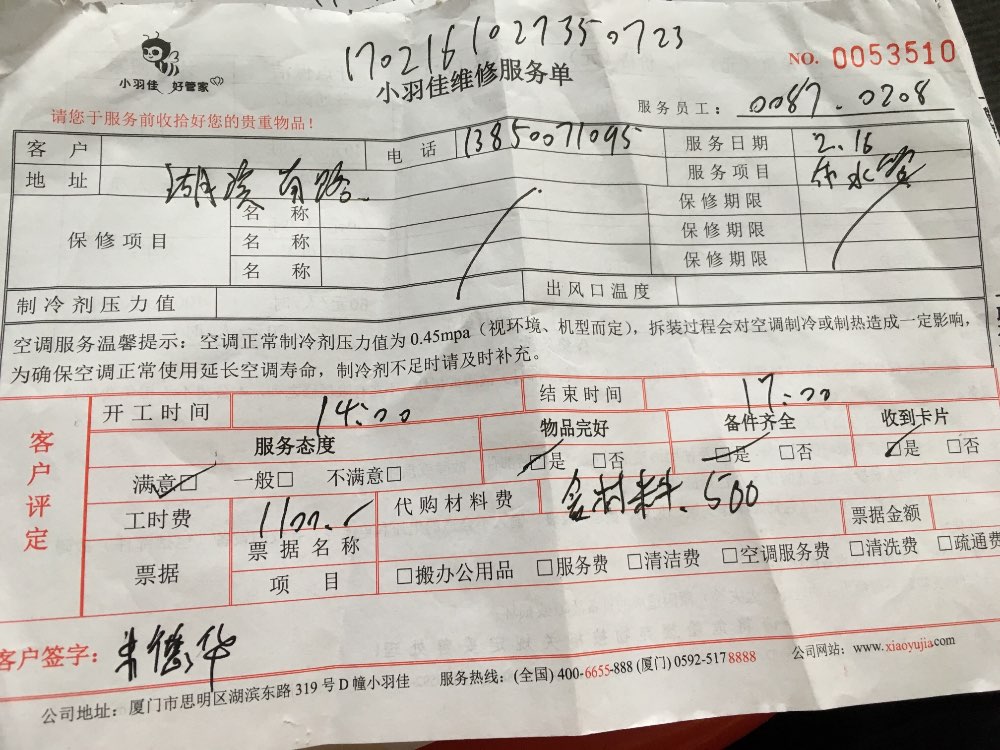 17021610273507 23
小羽佳 好管家
小羽佳维修服务单
NO. 0053510
请您于服务前收拾好您的贵重物品!
服务员工: 0087.0208
客户 电话 13850071095 服务日期 2.16
地址 湖滨南路 服务项目 水管
保修项目 名称 保修期限
名称 保修期限
名称 保修期限
制冷剂压力值 出风口温度
空调服务温馨提示:空调正常制冷剂压力值为0.45mpa(视环境、机型而定),拆装过程会对空调制冷或制热造成一定影响,
为确保空调正常使用延长空调寿命,制冷剂不足时请及时补充。
客户评定
开工时间 14:00 结束时间 17:00
服务态度 物品完好 备件齐全 收到卡片
满意□ 一般□ 不满意□ □是 □否 □是 □否 □是 □否
工时费 1100. 代购材料费 含材料.500 票据金额
票据 票据名称 □搬办公用品 □服务费 □清洁费 □空调服务费 □清洗费 □疏通费
项目
客户签字: 朱德华
公司地址:厦门市思明区湖滨东路319号D幢小羽佳 服务热线:(全国)400-6655-888 (厦门)0592-5178888 公司网站:www.xiaoyujia.com